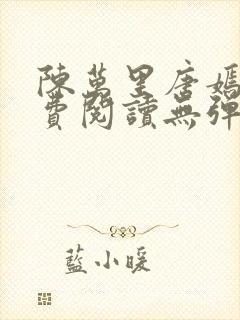 陳萬里唐嫣
費閱讀無彈
藍小暖